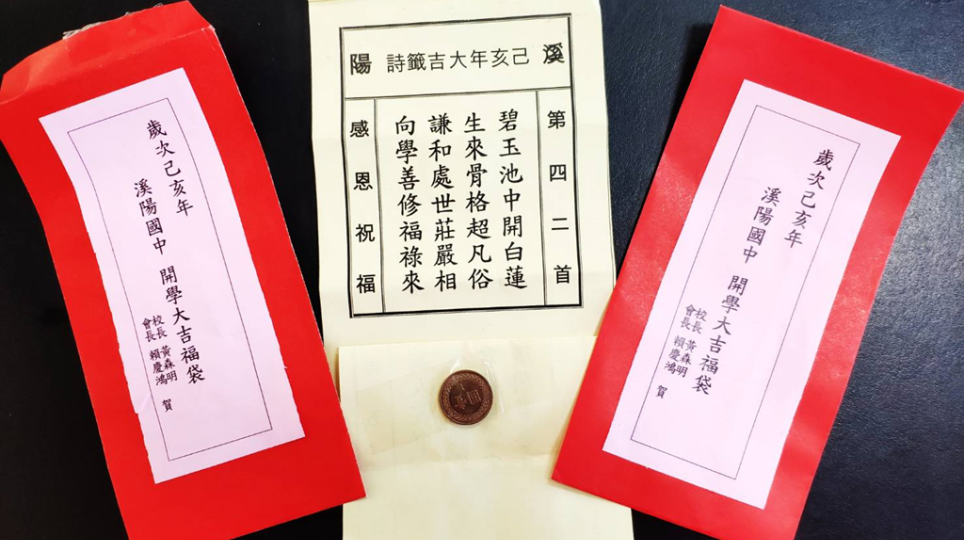 歲次己亥年
溪陽國中 開學大吉福袋
校長 黃森明
會長 賴慶鴻 賀
溪 己亥年大吉籤詩 陽
第四二首
碧玉池中開白蓮
生來骨格超凡俗
謙和處世莊嚴相
向學善修福祿來
感恩祝福
歲次己亥年
溪陽國中 開學大吉福袋
校長 黃森明
會長 賴慶鴻 賀